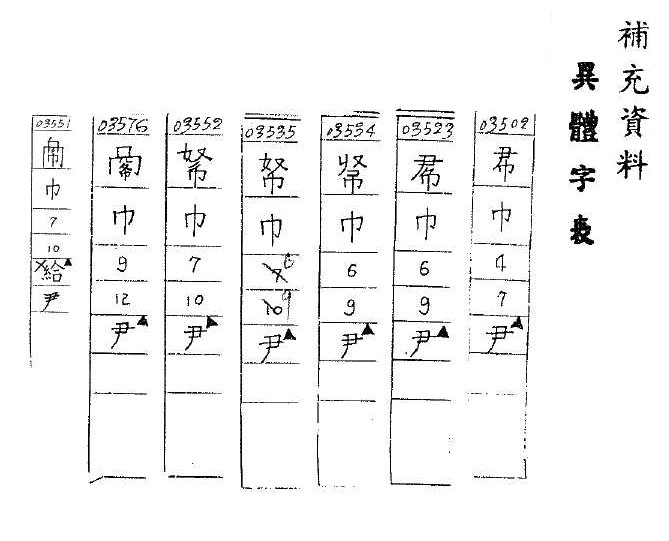 補充資料
異體字表
03502 巾 4 7 尹
03523 巾 6 9 尹
03534 巾 6 9 尹
03535 帑 巾 7 6 10 9 尹
03552 巾 7 10 尹
03576 巾 9 12 尹
03551 巾 7 10 給 尹